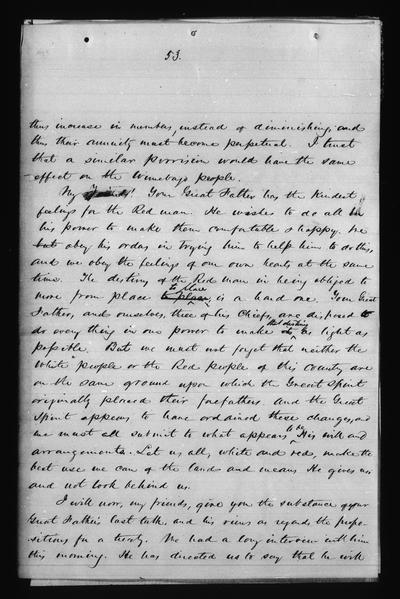 53.
thus increase in numbers, instead of diminishing, and
thus their annuity must become perpetual. I trust
that a similar provision would have the same
effect on the Winnebago people.
My Friends! Your Great Father has the kindest
feelings for the Red man. He wishes to do all in
his power to make them comfortable & happy. We
but obey his orders in trying him to help him to do this,
and we obey the feelings of our own hearts at the same
time. The destiny of the Red man in being obliged to
to place
move from place is a hard one. Your Great
Father, and ourselves, three of his Chiefs, are disposed to
that destiny
do every thing in our power to make as light as
possible. But we must not forget that neither the
White people or the Red people of this country are
on the same ground upon which the Great Spirit
originally placed their forefathers. And the Great
Spirit appears to have ordained these changes, and
to be
we must all submit to what appears His will and
arrangements. Let us all, white and red, make the
best use we can of the land and means He gives us
and not look behind us.
I will now, my friends, give you the substance of your
Great Father's last talk, and his views as regards the propo-
sitions for a treaty. We had a long interview with him
this morning. He has directed us to say that he will